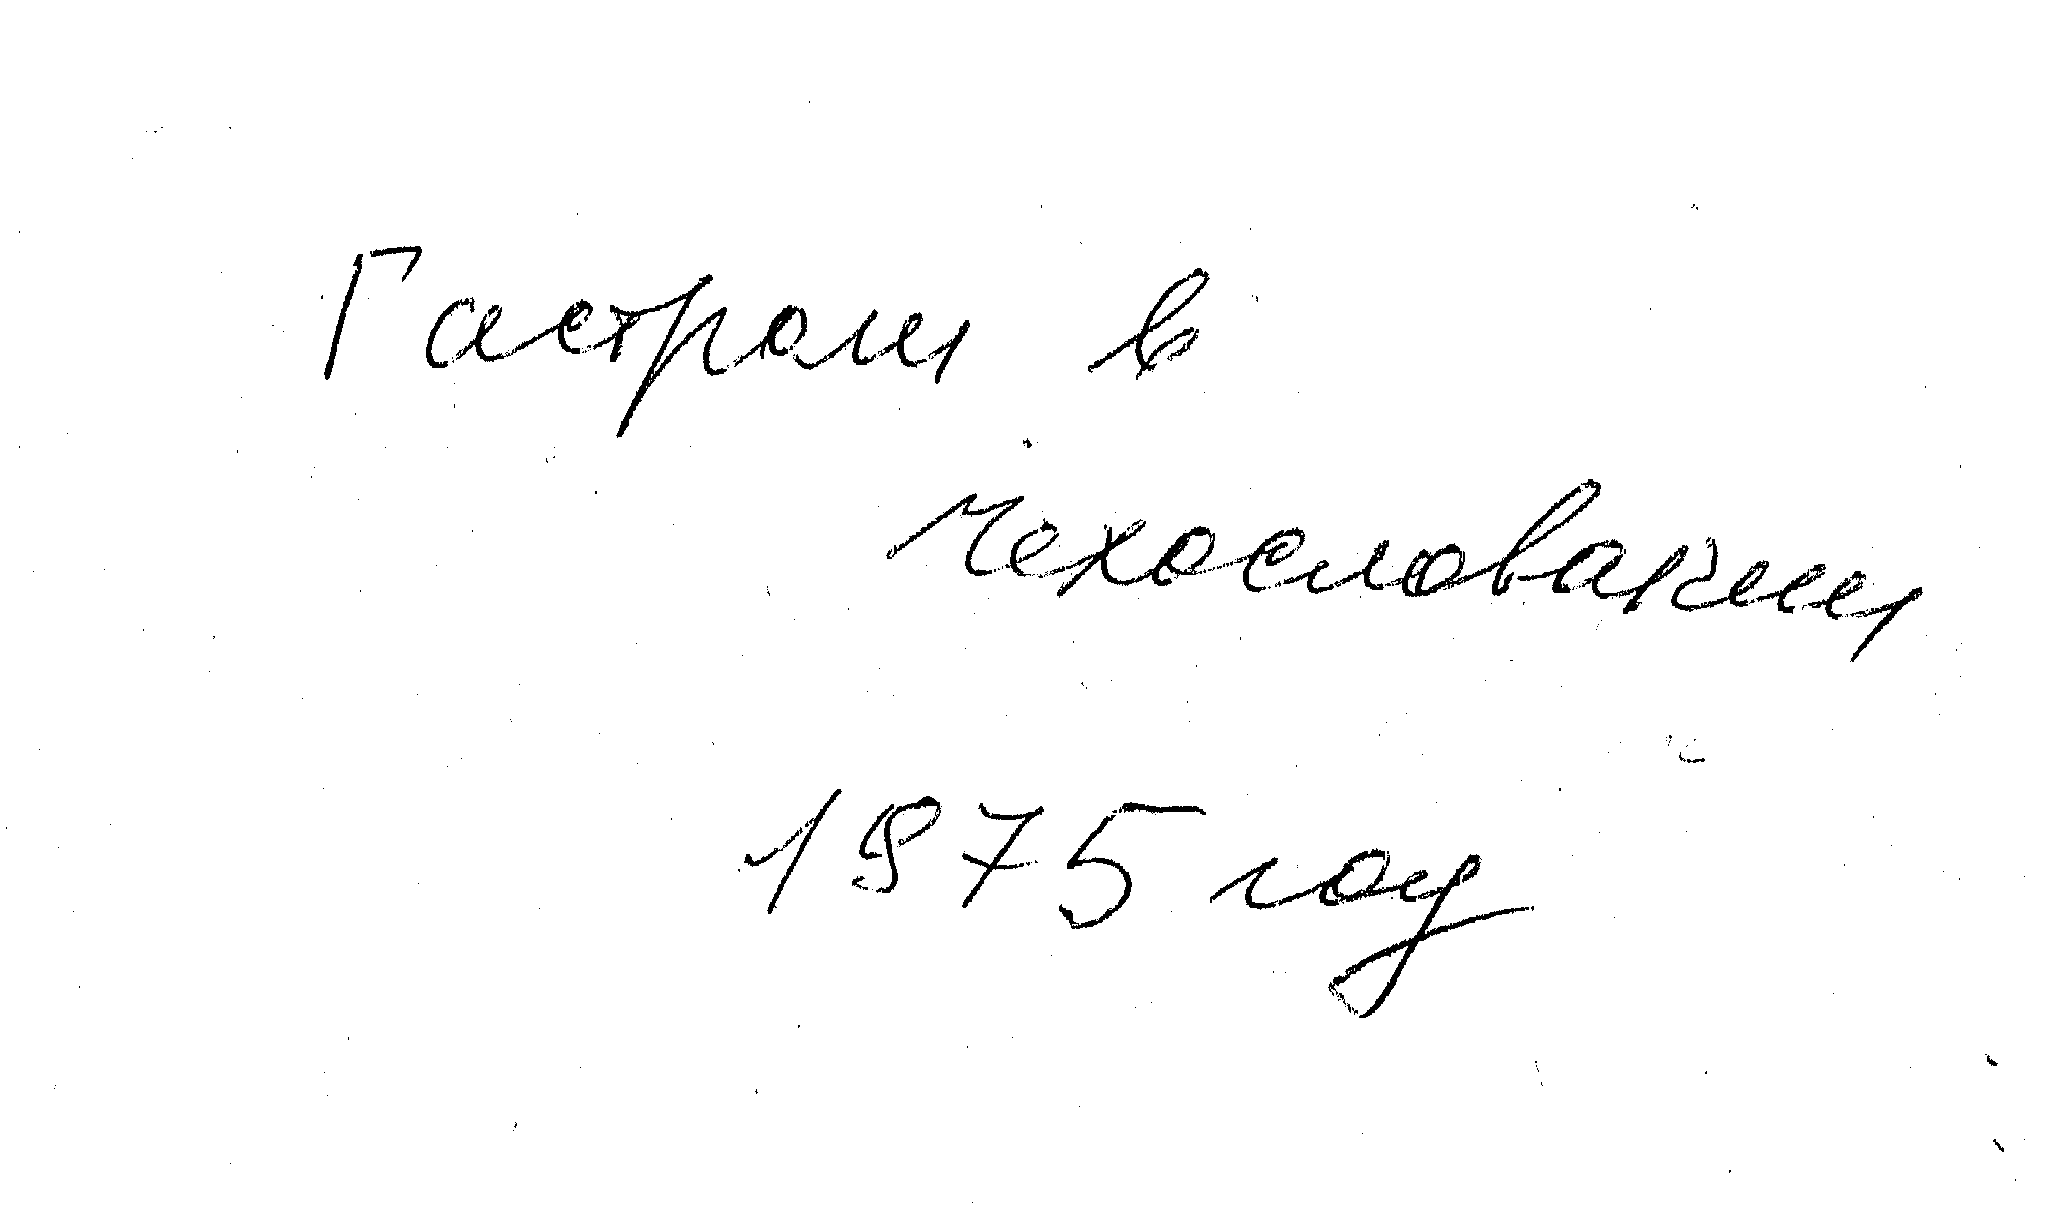 Гастроли в
Чехословакии
1975 год